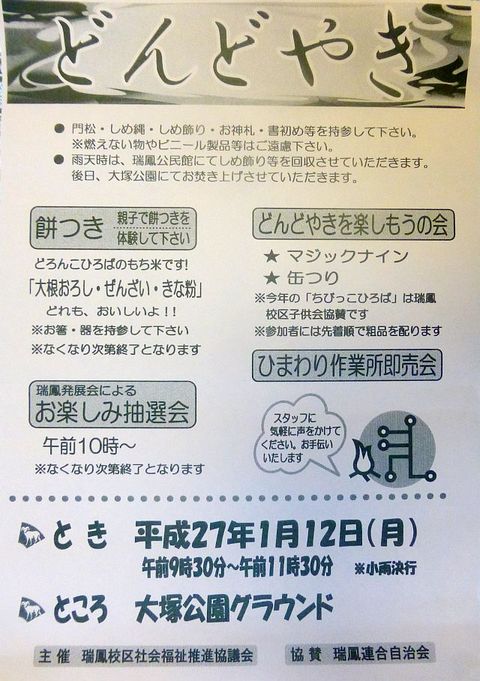 どんどやき
● 門松・しめ縄・しめ飾り・お神札・書初め等を持参して下さい。
※燃えない物やビニール製品等はご遠慮下さい。
● 雨天時は、瑞鳳公民館にてしめ飾り等を回収させていただきます。
後日、大塚公園にてお焚き上げさせていただきます。
餅つき 親子で餅つきを
体験して下さい
どろんこひろばのもち米です!
「大根おろし・ぜんざい・きな粉」
どれも、おいしいよ!!
※お箸・器を持参して下さい
※なくなり次第終了となります
どんどやきを楽しもうの会
★ マジックナイン
★ 缶つり
※今年の「ちびっこひろば」は瑞鳳
校区子供会協賛です
※参加者には先着順で粗品を配ります
ひまわり作業所即売会
瑞鳳発展会による
お楽しみ抽選会
午前10時～
※なくなり次第終了となります
スタッフに
気軽に声をかけて
ください。お手伝い
いたします
とき 平成27年1月12日(月)
午前9時30分～午前11時30分 ※小雨決行
ところ 大塚公園グラウンド
主催 瑞鳳校区社会福祉推進協議会
協賛 瑞鳳連合自治会